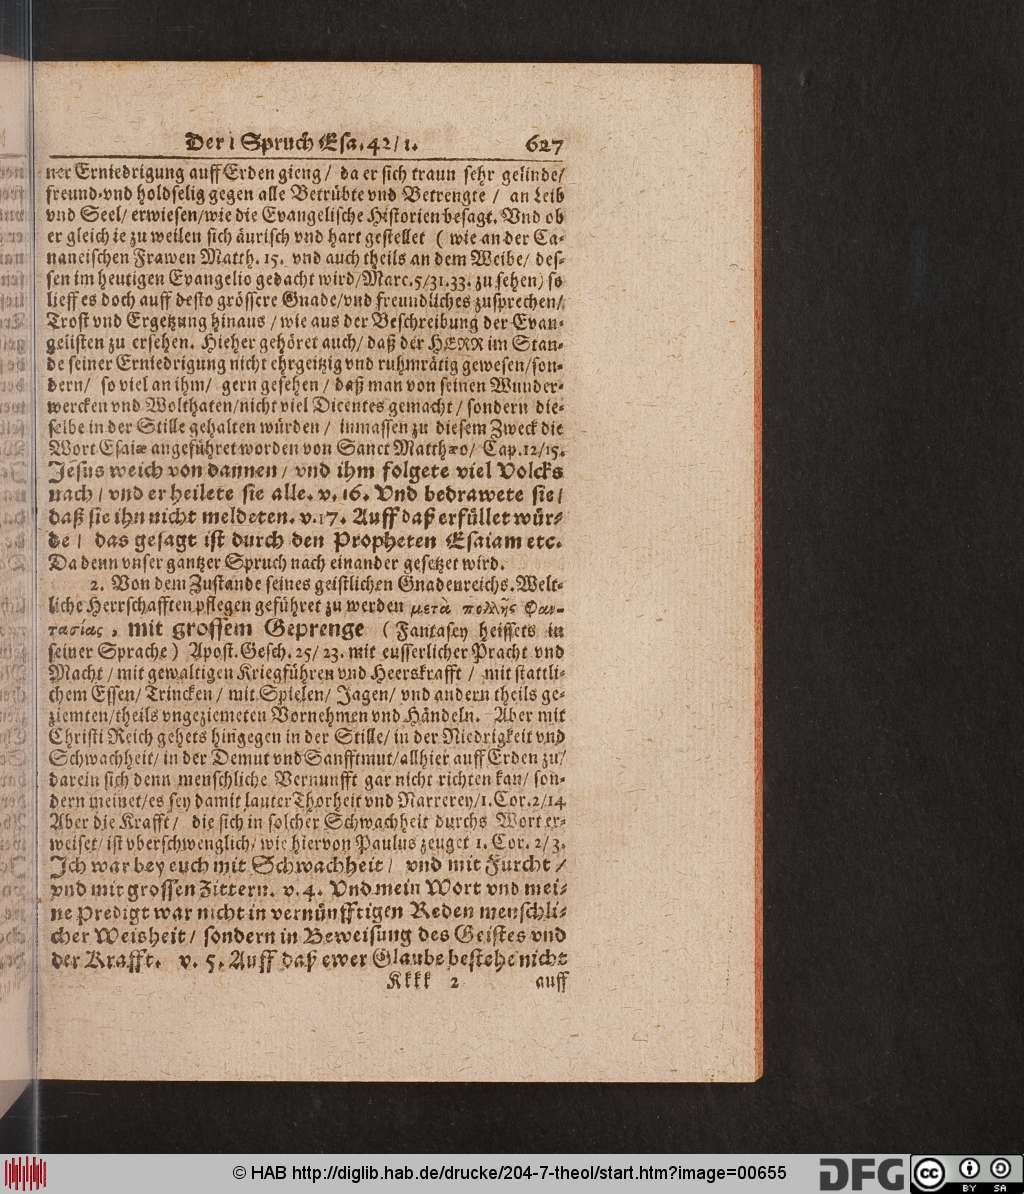 Der 1 Spruch Esa. 42/1. 627
ner Erniedrigung auff Erden gieng/ da er sich traun sehr gelinde/
freund-vnd holdselig gegen alle Betrübte vnd Betrengte / an Leib
vnd Seel/ erwiesen/wie die Evangelische Historien besagt. Vnd ob
er gleich ie zu weilen sich äurisch vnd hart gestellet ( wie an der Ca-
naneischen Frawen Matth. 15. vnd auch theils an dem Weibe/ des-
sen im heutigen Evangelio gedacht wird/Marc.5/31.33. zu sehen) so
lieff es doch auff desto grössere Gnade/vnd freundliches zusprechen/
Trost vnd Ergetzung hinaus /wie aus der Beschreibung der Evan-
gelisten zu ersehen. Hieher gehöret auch/ daß der HERR im Stan-
de seiner Erniedrigung nicht ehrgeitzig vnd ruhmrätig gewesen/son-
dern/ so viel an ihm/ gern gesehen / daß man von seinen Wunder-
wercken vnd Wolthaten/nicht viel Dicentes gemacht/ sondern die-
selbe in der Stille gehalten würden / inmassen zu diesem Zweck die
Wort Esaiæ angeführet worden von Sanct Matthæo/ Cap.12/15.
Jesus weich von dannen/ vnd ihm folgete viel Volcks
nach/ vnd er heilete sie alle. v. 16. Vnd bedrawete sie/
daß sie ihn nicht meldeten. v.17. Auff daß erfüllet wür-
de/ das gesagt ist durch den Propheten Esaiam etc.
Da denn vnser gantzer Spruch nach einander gesetzet wird.
2. Von dem Zustande seines geistlichen Gnadenreichs. Welt-
liche Herrschafften pflegen geführet zu werden μετὰ πολλῆς Φαν-
τασίας, mit grossem Geprenge ( Fantasey heissets in
seiner Sprache) Apost. Gesch. 25/ 23. mit eusserlicher Pracht vnd
Macht/ mit gewaltigen Kriegführen vnd Heerskrafft / mit stattli-
chem Essen/ Trincken / mit Spielen/ Jagen/ vnd andern theils ge-
ziemten/theils vngeziemeten Vornehmen vnd Händeln. Aber mit
Christi Reich gehets hingegen in der Stille/ in der Niedrigkeit vnd
Schwachheit/ in der Demut vnd Sanfftmut/allhier auff Erden zu/
darein sich denn menschliche Vernunfft gar nicht richten kan/ son-
dern meinet/es sey damit lauter Thorheit vnd Narrerey/1. Cor.2/14
Aber die Krafft/ die sich in solcher Schwachheit durchs Wort er-
weiset/ ist vberschwenglich/ wie hiervon Paulus zeuget 1. Cor. 2/3.
Ich war bey euch mit Schwachheit/ vnd mit Furcht /
vnd mit grossen Zittern. v. 4. Vnd mein Wort vnd mei-
ne Predigt war nicht in vernünfftigen Reden menschli-
cher Weisheit/ sondern in Beweisung des Geistes vnd
der Krafft. v. 5. Auff daß ewer Glaube bestehe nicht
Kkkk 2 auff
© HAB http://diglib.hab.de/drucke/204-7-theol/start.htm?image=00655
DFG
cc BY SA